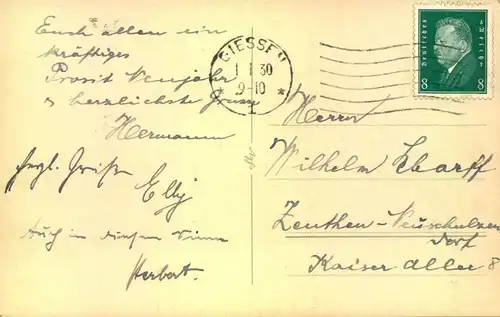 Euch allen ein
kräftiges
Prosit Neujahr
& herzlichste Grüsse
Hermann
Hrzl. Grüße
Elly
Auch in diesem Sinne
Herbert.
GIESSEN
1 1 30
9-10
* *
1
Deutsches Reich
8 8
Herrn
Wilhelm Scharff
Zeuthen-Neuschulzen
dorf
Kaiser allee 8